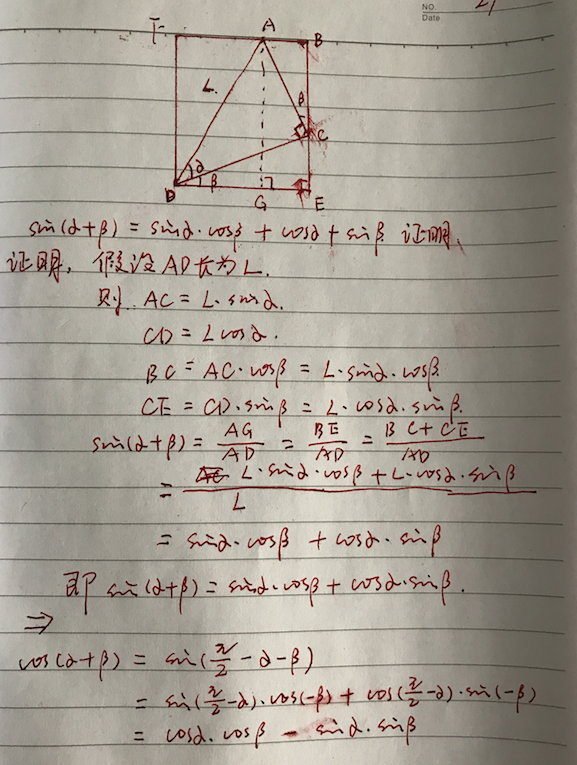 NO.
Date
F A B
L.
β
C
α
β
D G E
sin(α+β) = sinα·cosβ + cosα + sinβ 证明.
证明, 假设AD长为L.
则 AC = L·sinα.
CD = L cosα.
BC = AC·cosβ = L·sinα·cosβ
CE = CD·sinβ = L·cosα·sinβ.
sin(α+β) = AG/AD = BE/AD = BC+CE/AD
= L·sinα·cosβ + L·cosα·sinβ / L
= sinα·cosβ + cosα·sinβ
即 sin(α+β) = sinα·cosβ + cosα·sinβ.
⇒
cos(α+β) = sin(π/2 - α - β)
= sin(π/2 - α)·cos(-β) + cos(π/2 - α)·sin(-β)
= cosα·cosβ - sinα·sinβ